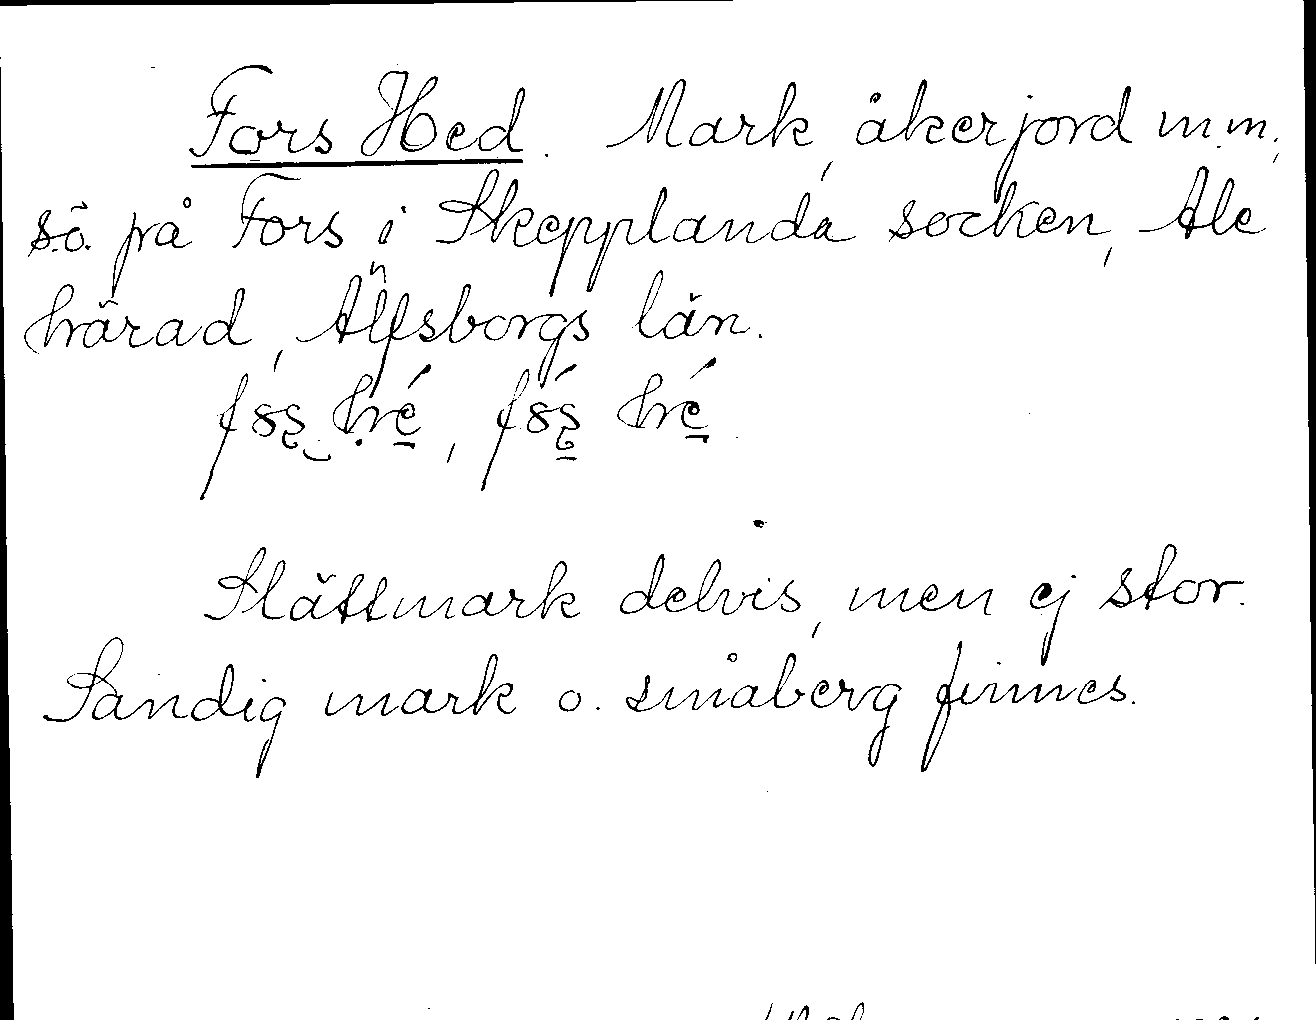 Fors Hed. Mark, åkerjord m.m.,
s.ö. på Fors i Skepplanda socken, Ale
härad, Älfsborgs län.
Slättmark delvis, men ej stor.
Sandig mark o. småberg finnes.